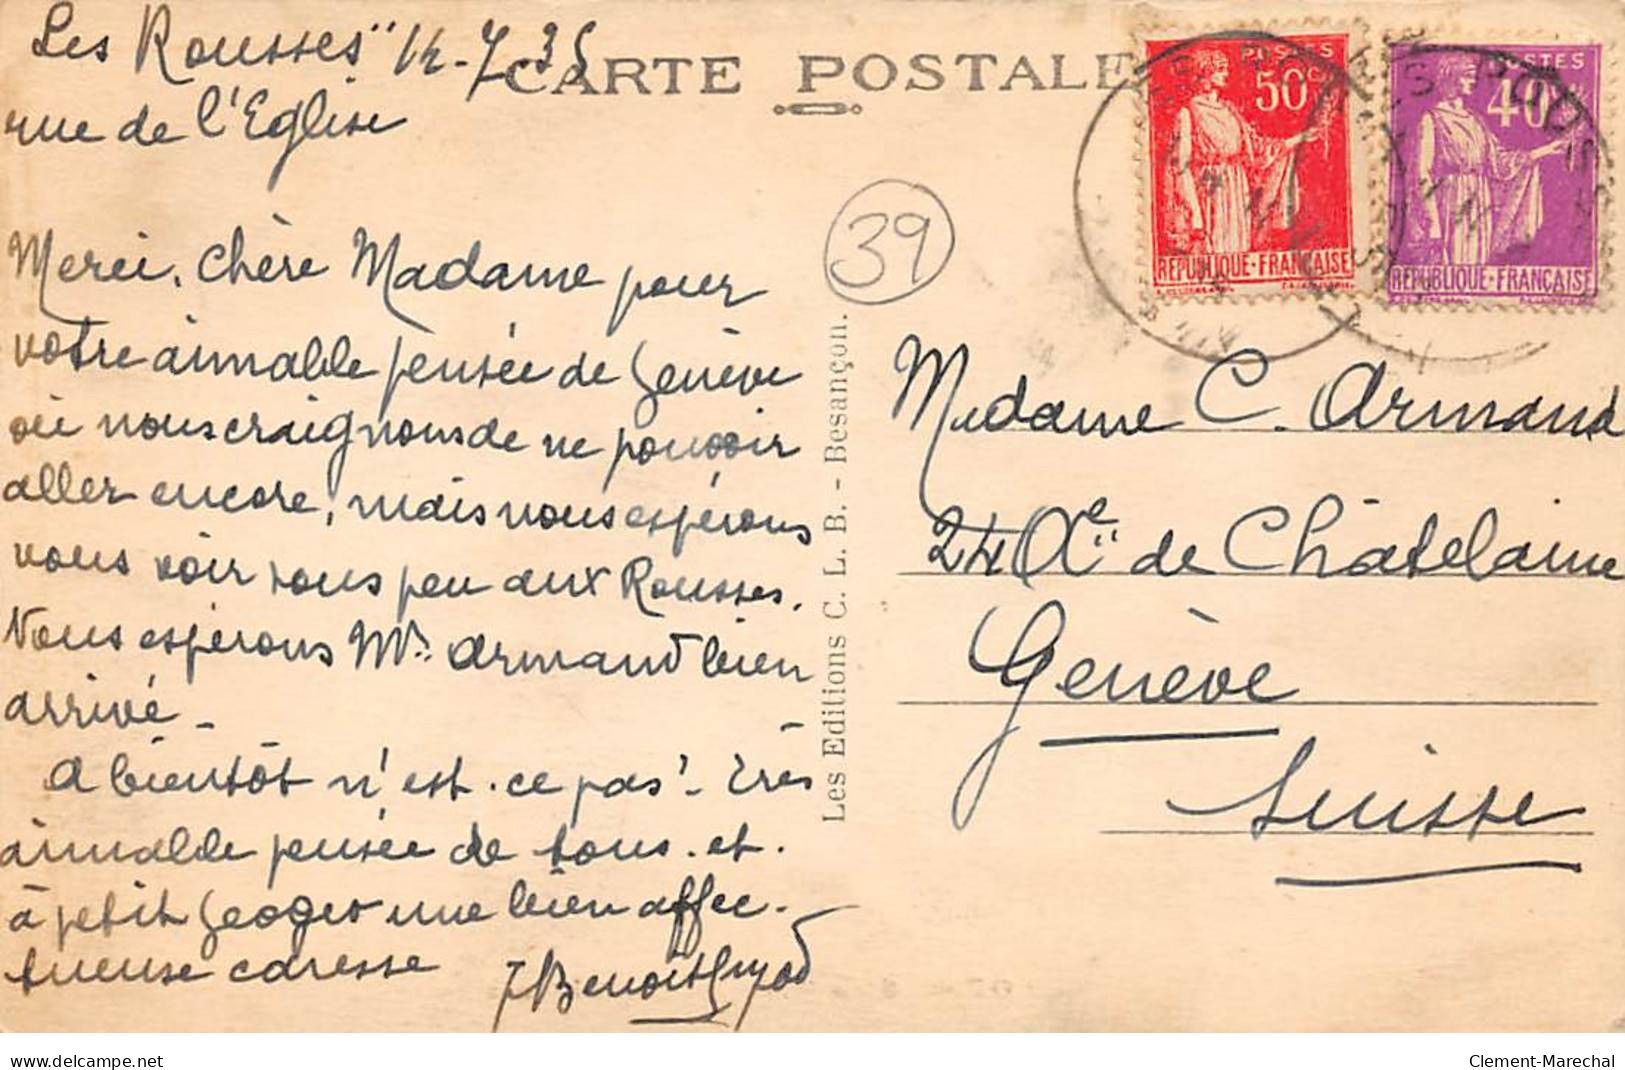 Les Rousses 14-7-35
rue de l'Eglise
CARTE POSTALE
POSTES
50c
REPUBLIQUE-FRANÇAISE
POSTES
40c
REPUBLIQUE-FRANÇAISE
39
Merci, chère Madame pour
votre aimable pensée de Genève
où nous craignons de ne pouvoir
aller encore, mais nous espérons
vous voir sous peu aux Rousses.
Nous espérons Mr. Armand bien
arrivé -
A bientôt n'est-ce pas - Très
aimable pensée de tous et
à petit Georges une bien affec-
tueuse caresse
Les Editions C. L. B. - Besançon.
Madame C. Armand
24 Ae de Châtelaine
Genève
Suisse
www.delcampe.net
Clement-Marechal